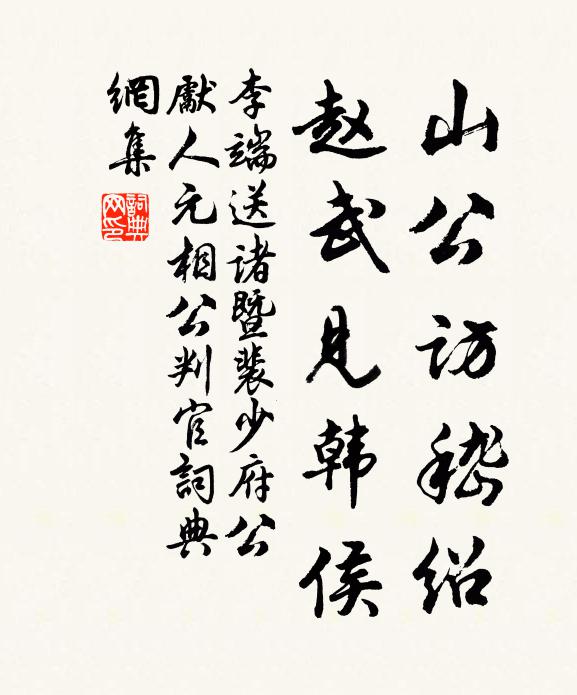 山公访嵇绍
赵武见韩侯
李端送诸暨裴少府公
獻人元相公判官詞典
網集
詞典
网印